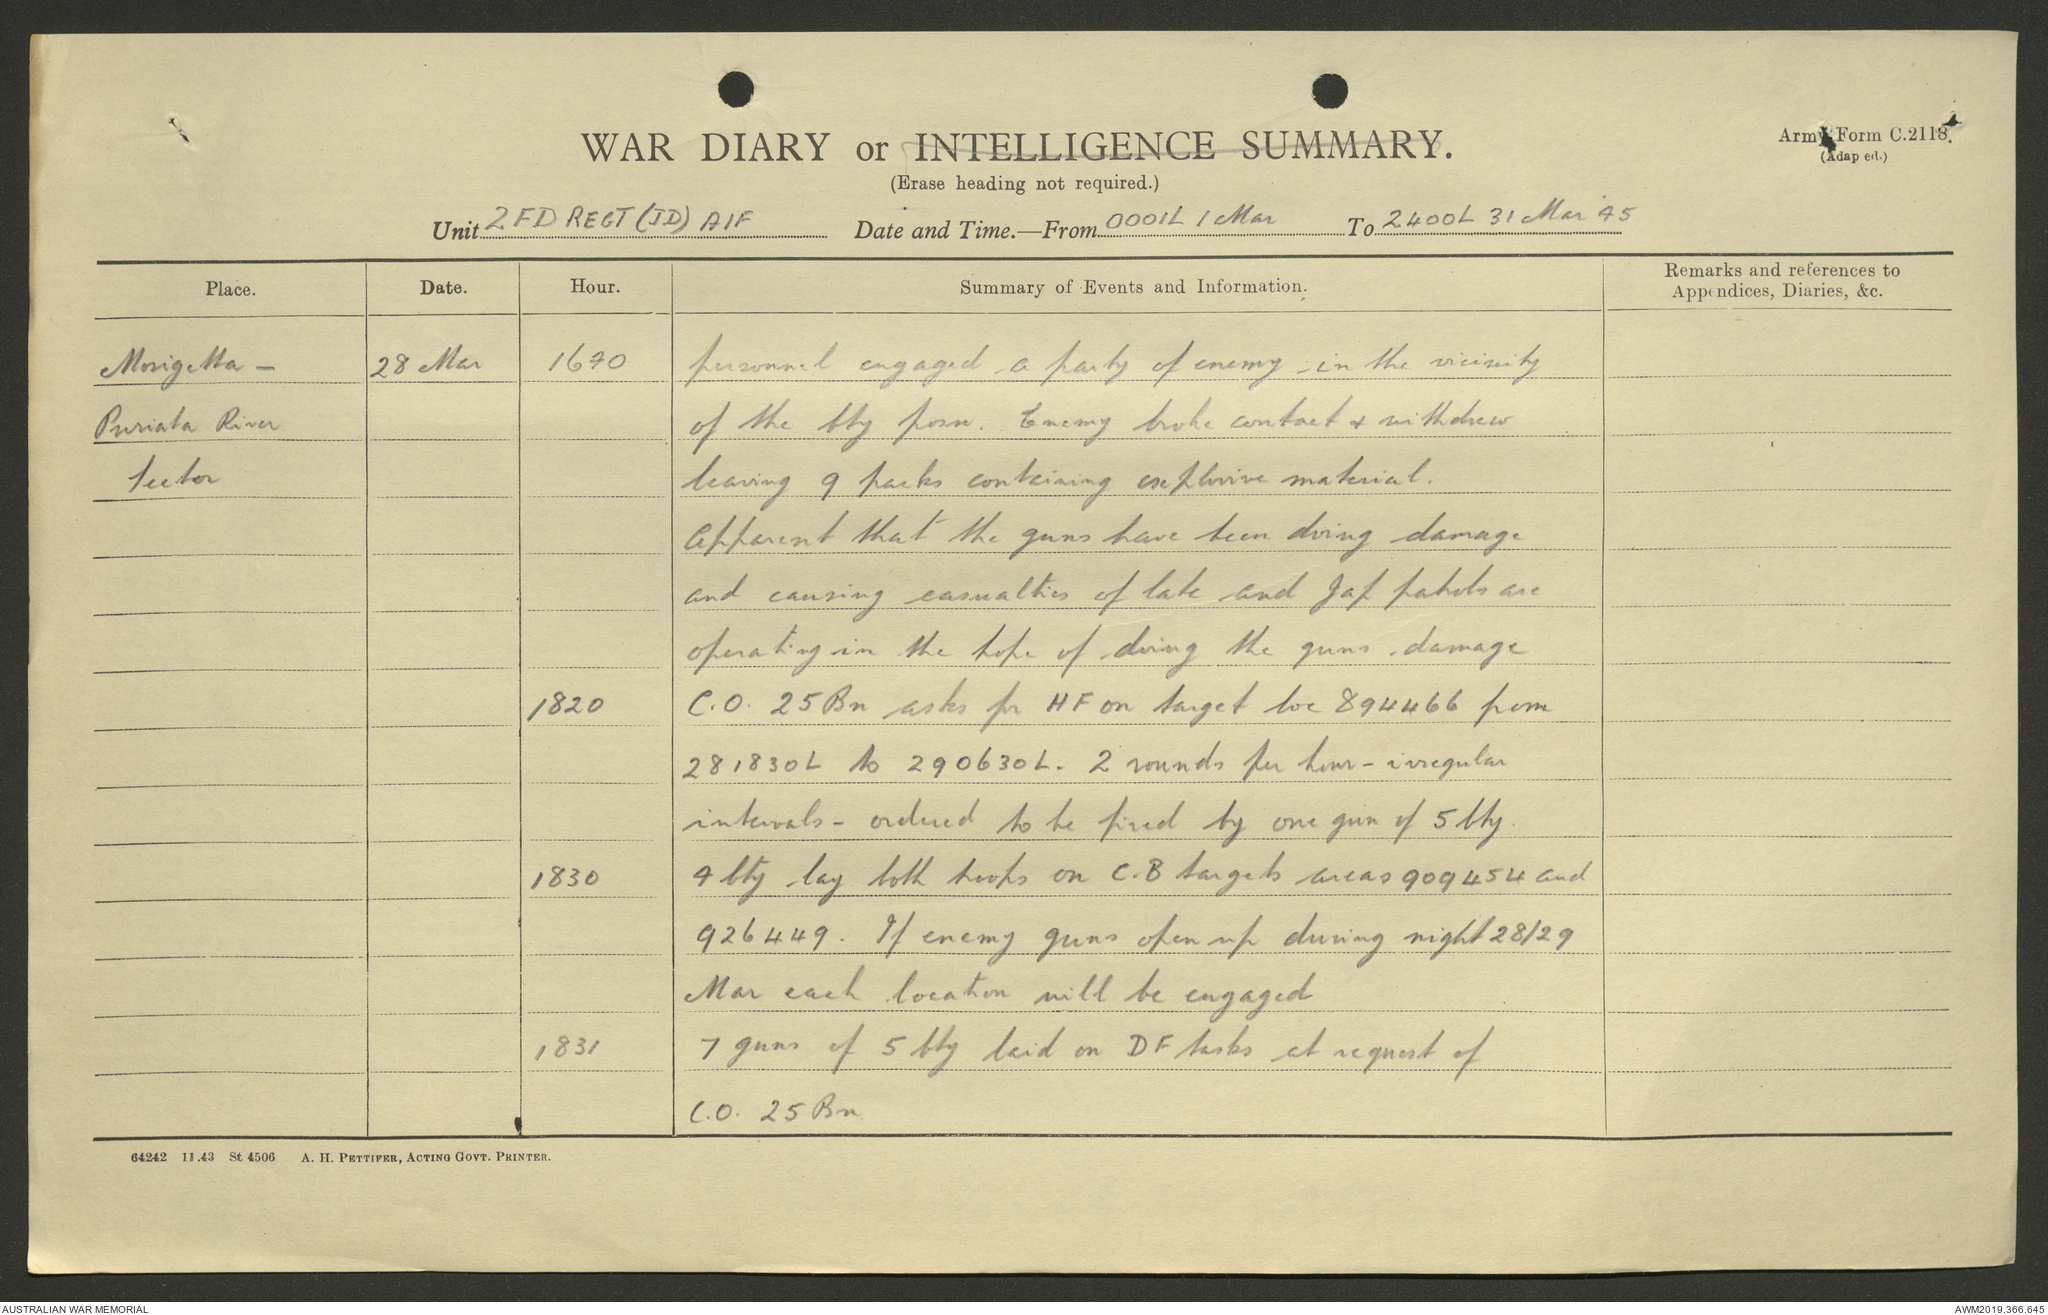 WAR DIARY or INTELLIGENCE SUMMARY.
Army Form C.2118.
(Adap ed.)
(Erase heading not required.)
Unit 2 FD REGT (JD) AIF Date and Time.—From 0001L 1 Mar To 2400L 31 Mar 45
Place. Date. Hour. Summary of Events and Information. Remarks and references to Appendices, Diaries, &c.
Mosigetta - 28 Mar 1640 personnel engaged a party of enemy in the vicinity
Puriata River of the bty posn. Enemy broke contact & withdrew
Sector leaving 9 packs containing explosive material.
Apparent that the guns have been doing damage
and causing casualties of late and Jap patrols are
operating in the hope of doing the guns damage
1820 C.O. 25 Bn asks for HF on target loc 894466 from
281830L to 290630L. 2 rounds per hour - irregular
intervals - ordered to be fired by one gun of 5 bty.
1830 4 bty lay both troops on C.B targets areas 909454 and
926449. If enemy guns open up during night 28/29
Mar each location will be engaged
1831 7 guns of 5 bty laid on DF tasks at request of
C.O. 25 Bn
64242 11.43 St 4506 A. H. PETTIFER, ACTING GOVT. PRINTER.
AUSTRALIAN WAR MEMORIAL AWM2019.366.645